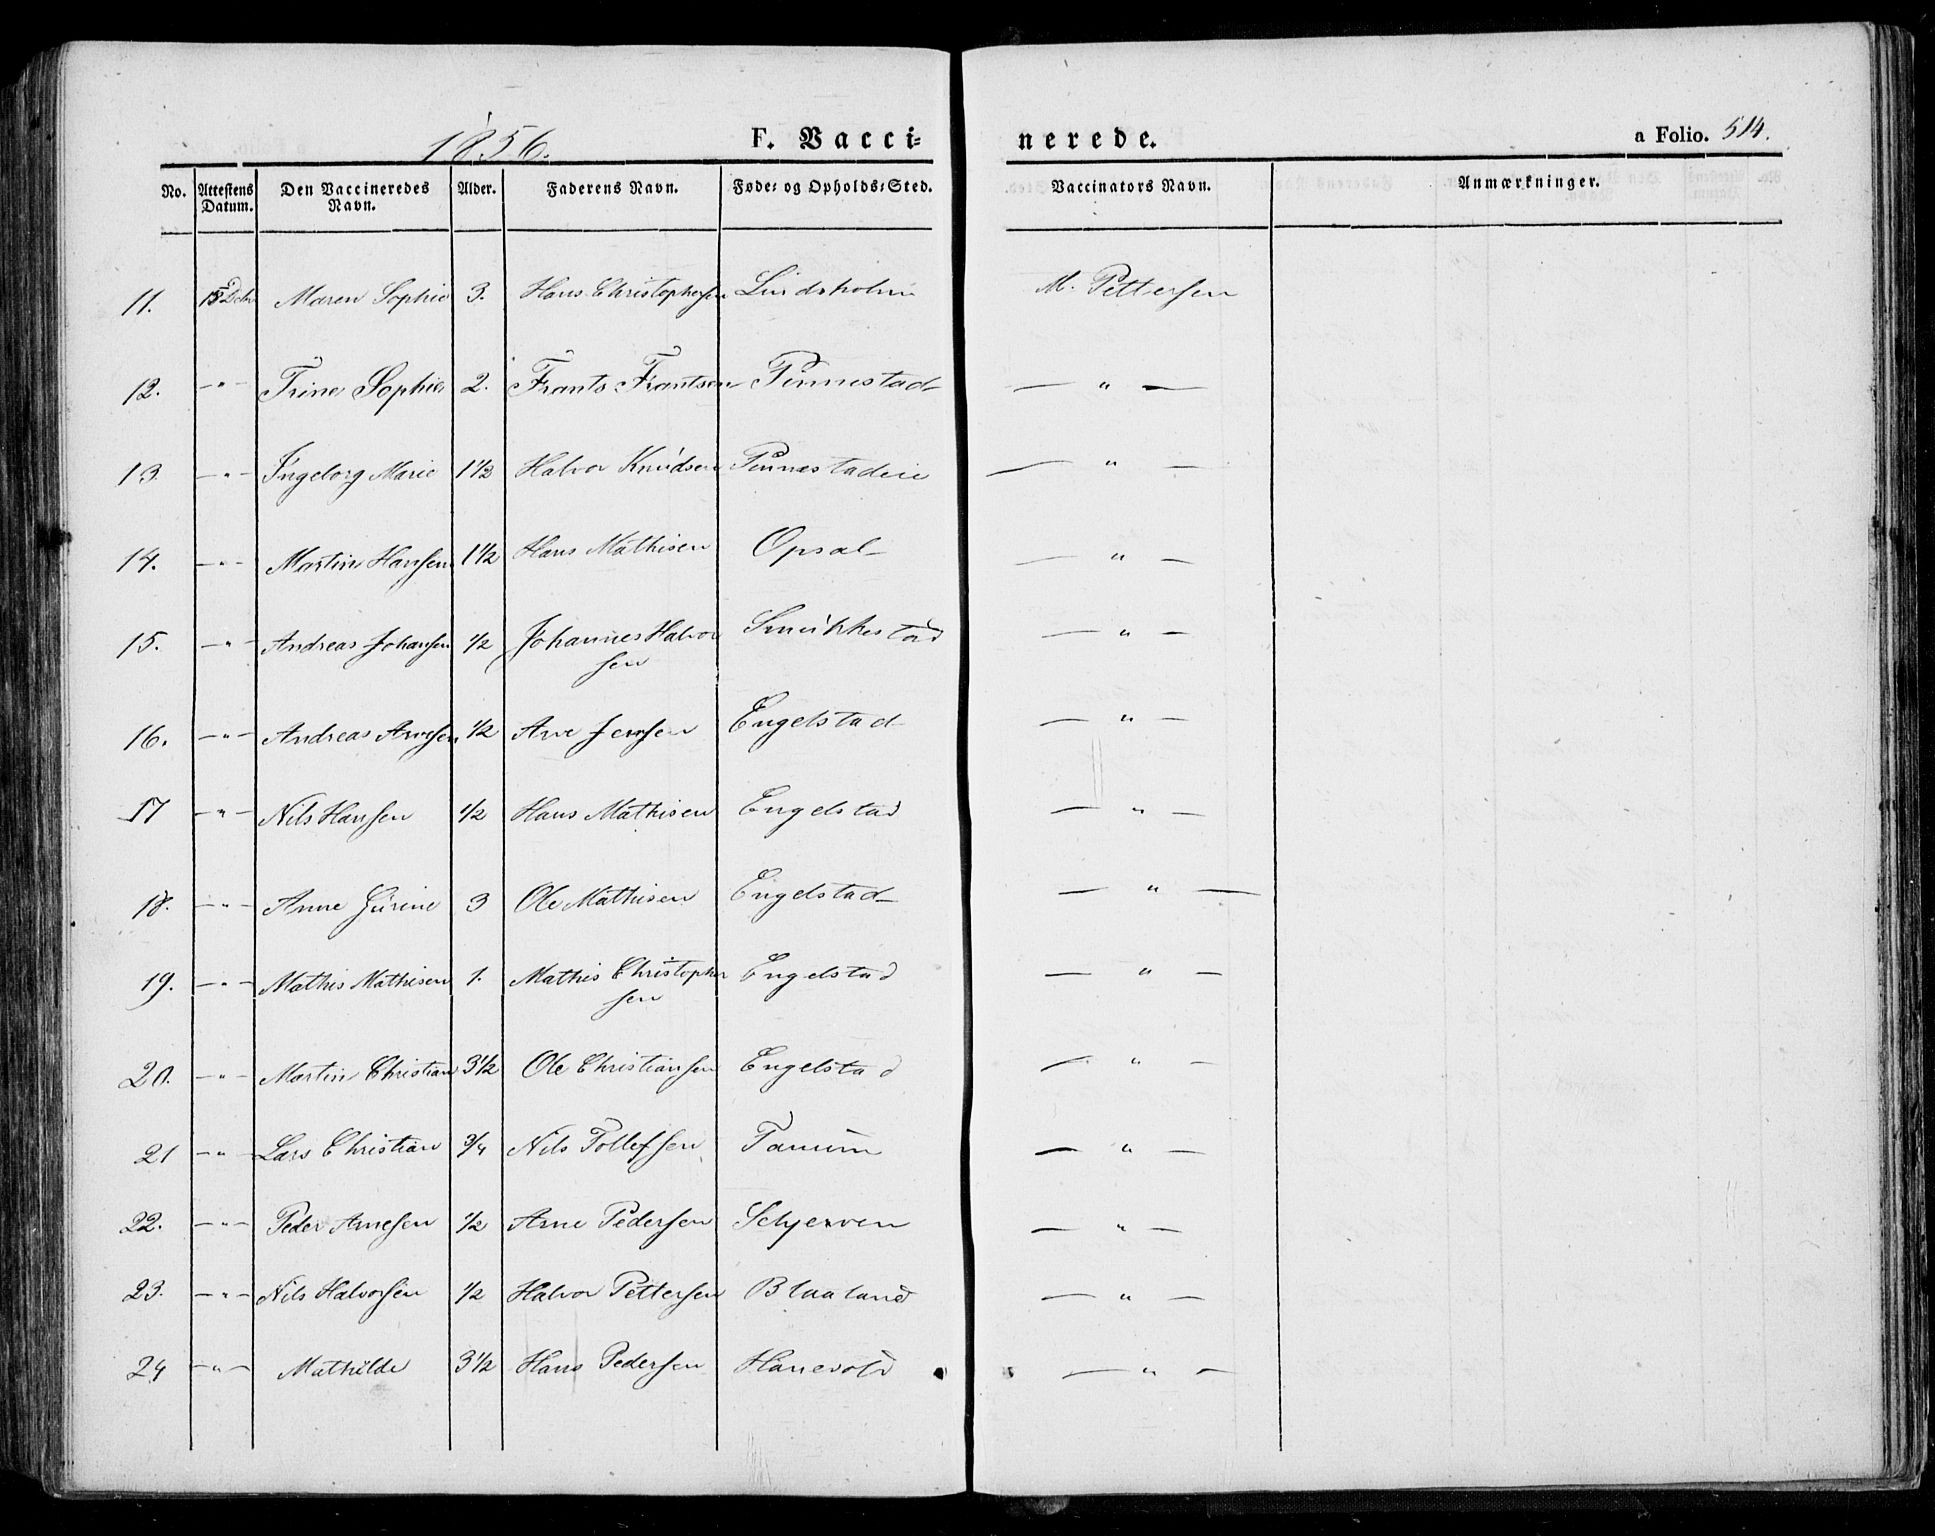 1856. F. Vacci= nerede. a Folio. 514.
No. Attestens Datum. Den Vaccineredes Navn. Alder. Faderens Navn. Føde= og Opholds=Sted. Vaccinators Navn. Anmærkninger.
11. 15 Maren Sophie 3. Hans Christophersen Lindsholm M. Pettersen
12. -"- Trine Sophie 2. Frants Frantsen Pinnestad — " —
13. -"- Ingeborg Marie 1 1/2 Halvor Knudsen Pinnestadeie — " —
14. -"- Martin Hansen 1 1/2 Hans Mathisen Opsal — " —
15. -"- Andreas Johansen 1/2 Johannes Halvor Smukkestad — " —
sen
16. -"- Andreas Arvesen 1/2 Arve Jensen Engelstad — " —
17 -"- Nils Hansen 1/2 Hans Mathisen Engelstad — " —
18. -"- Anne Gurine 3 Ole Mathisen Engelstad — " —
19. -"- Mathis Mathisen 1. Mathis Christopher Engelstad — " —
sen
20. -"- Martin Christian 3 1/2 Ole Christiansen Engelstad — " —
21 -"- Lars Christian 3/4 Nils Tollefsen Tanum — " —
22. -"- Peder Arnesen 1/2 Arne Pedersen Schjerven — " —
23. -"- Nils Halvorsen 1/2 Halvor Pettersen Blaaland — " —
24 -"- Mathilde 3 1/2 Hans Pedersen Hanevold — " —